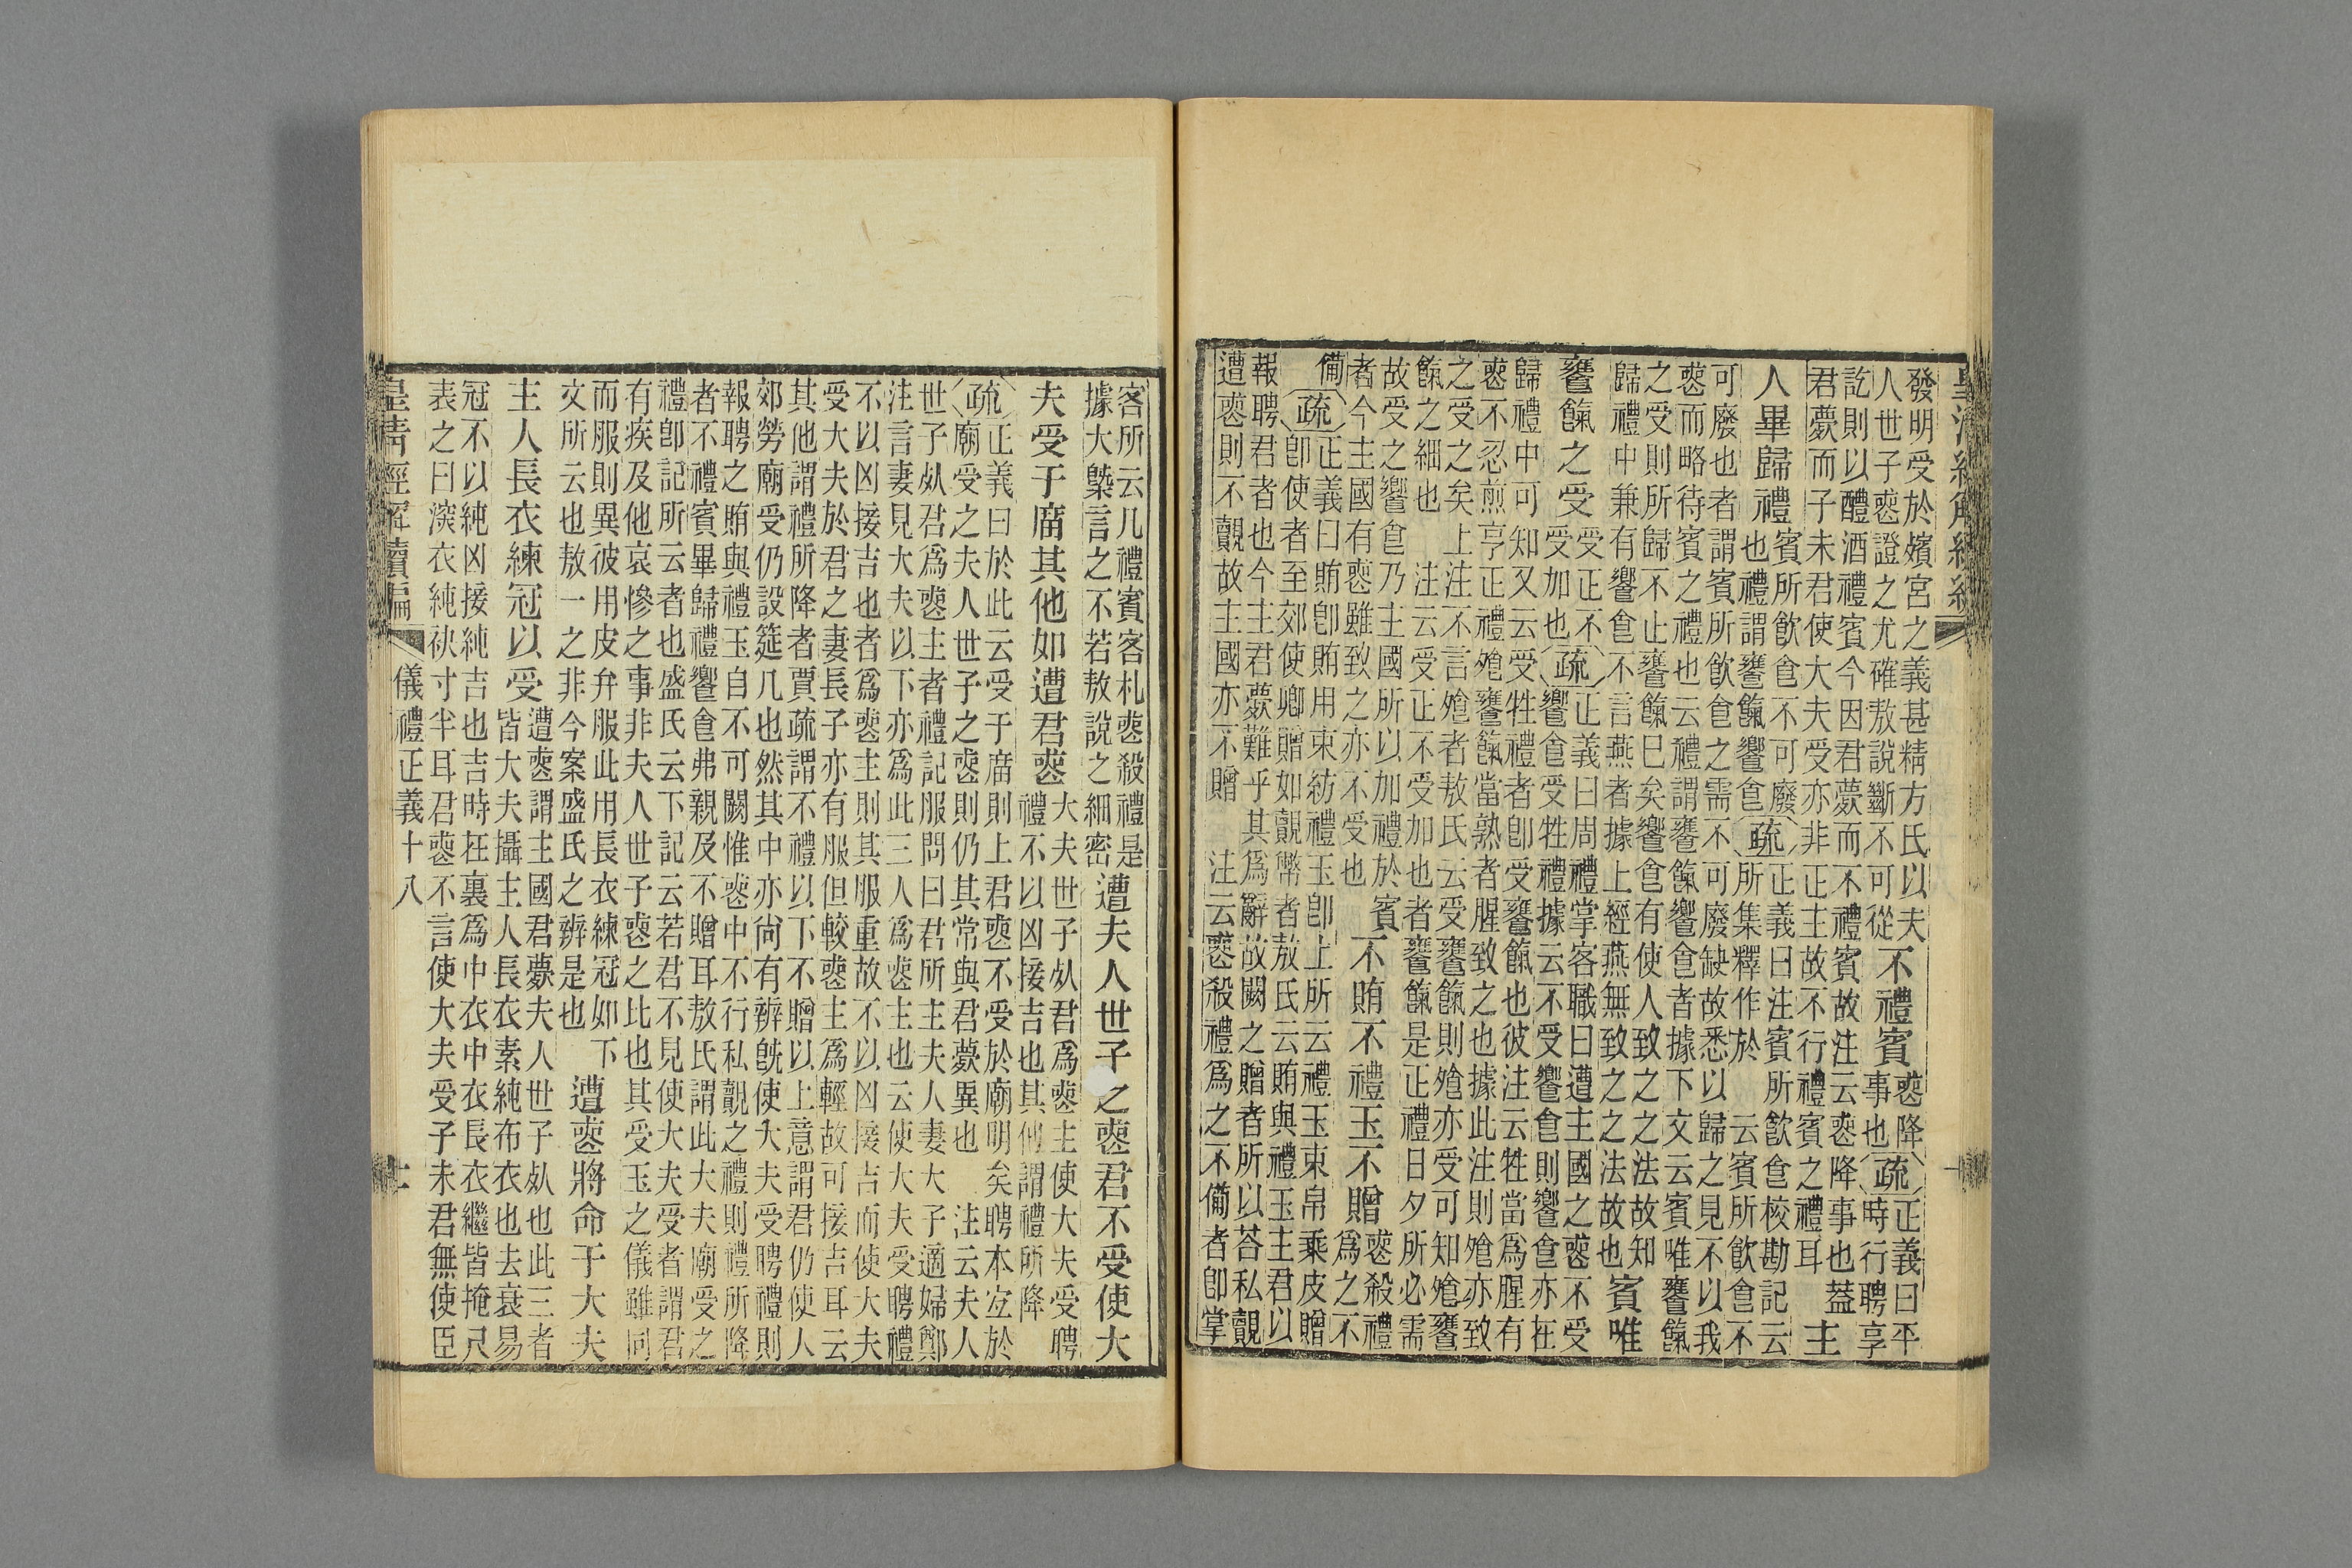 發明受於嬪宮之義甚精方氏以夫
人世子䘮證之尤確敖說斷不可從
不禮賓
䘮降
事也
疏
正義曰平
時行聘享
訖則以醴酒禮賓今因君薨而不禮賓故注云䘮降事也葢
君薨而子未君使大夫受亦非正主故不行禮賓之禮耳
主
人畢歸禮
賓所飮𩚁不可廢
也禮謂饔餼饗𩚁
疏
正義曰注賓所飮𩚁校勘記云
所集釋作於云賓所飮𩚁不
可廢也者謂賓所飮𩚁之需不可廢缺故悉以歸之見不以我
䘮而略待賓之禮也云禮謂饔餼饗𩚁者據下文云賓唯饔餼
之受則所歸不止饔餼巳矣饗𩚁有使人致之之法故知
歸禮中兼有饗𩚁不言燕者據上經燕無致之之法故也
賓唯
饔餼之受
受正不
受加也
疏
正義曰周禮掌客職曰遭主國之䘮不受
饗𩚁受牲禮據云不受饗𩚁則饗𩚁亦在
歸禮中可知又云受牲禮者卽受饔餼也彼注云牲當爲腥有
䘮不忍煎亨正禮飧饔餼當熟者腥致之也據此注則飧亦致
之受之矣上注不言飧者敖氏云受饔餼則飧亦受可知飧饔
餼之細也　注云受正不受加也者饔餼是正禮日夕所必需
故受之饗𩚁乃主國所以加禮於賓
者今主國有䘮雖致之亦不受也
不賄不禮玉不贈
䘮殺禮
爲之不
備
疏
正義曰賄卽賄用束紡禮玉卽上所云禮玉束帛乘皮贈
卽使者至郊使卿贈如覿幣者敖氏云賄與禮玉主君以
報聘君者也今主君薨難乎其爲辭故闕之贈者所以荅私覿
遭䘮則不覿故主國亦不贈　注云䘮殺禮爲之不備者卽掌
客所云凡禮賓客札䘮殺禮是
據大槩言之不若敖說之細密
遭夫人世子之䘮君不受使大
夫受于廟其他如遭君䘮
大夫世子䘮君爲䘮主使大夫受聘
禮不以凶接吉也其他謂禮所降
疏
正義曰於此云受于廟則上君䘮不受於廟明矣聘本宜於
廟受之夫人世子之䘮則仍其常與君薨異也　注云夫人
世子䘮君爲䘮主者禮記服問曰君所主夫人妻大子適婦鄭
注言妻見大夫以下亦爲此三人爲䘮主也云使大夫受聘禮
不以凶接吉也者爲䘮主則其服重故不以凶接吉而使大夫
受大夫於君之妻長子亦有服但較䘮主爲輕故可接吉耳云
其他謂禮所降者賈疏謂不禮以下不贈以上意謂君仍使人
郊勞廟受仍設筵几也然其中亦尙有辨旣使大夫受聘禮則
報聘之賄與禮玉自不可闕惟䘮中不行私覿之禮則禮所降
者不禮賓畢歸禮饗𩚁弗親及不贈耳敖氏謂此大夫廟受之
禮卽記所云者也盛氏云下記云若君不見使大夫受者謂君
有疾及他哀慘之事非夫人世子䘮之比也其受玉之儀雖同
而服則異彼用皮弁服此用長衣練冠如下
文所云也敖一之非今案盛氏之辨是也
遭䘮將命于大夫
主人長衣練冠以受
遭䘮謂主國君薨夫人世子䘮也此三者
皆大夫攝主人長衣素純布衣也去衰易
冠不以純凶接純吉也吉時在裏爲中衣中衣長衣繼皆掩尺
表之曰深衣純袂寸半耳君䘮不言使大夫受子未君無使臣
皇淸經解續編
儀禮正義十八